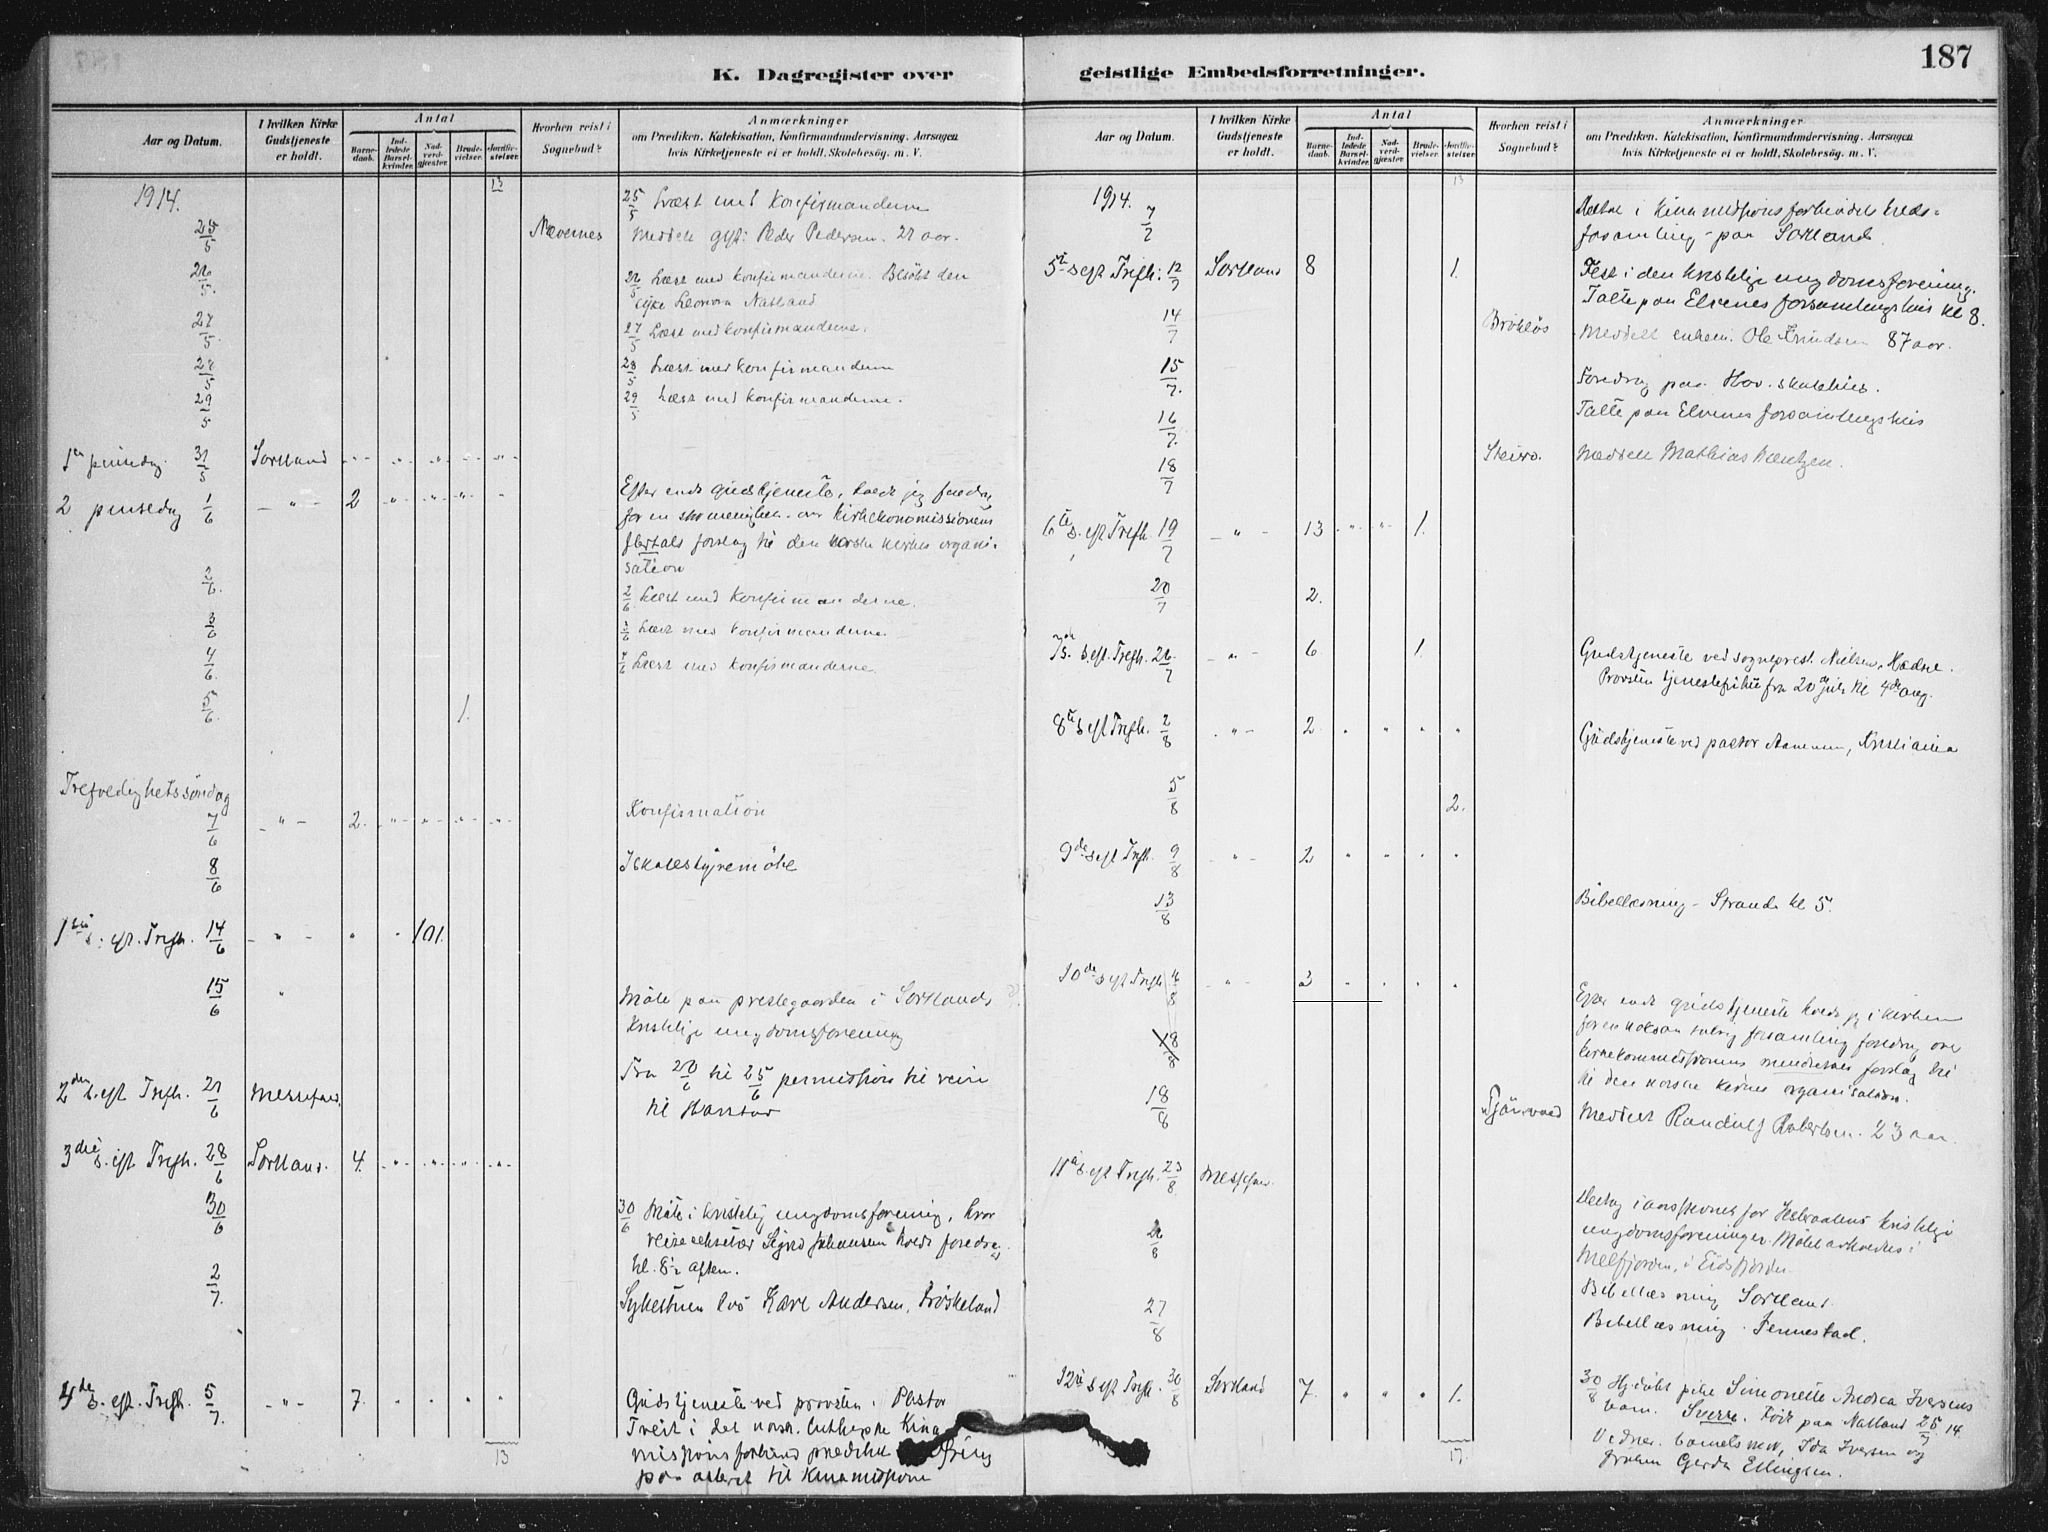 187
K. Dagregister over
geistlige Embedsforretninger.
Aar og Datum.
I hvilken Kirke Gudstjeneste er holdt.
Antal
Barne-daab.
Ind-ledede Barsel-kvinder.
Nad-verd-gjester.
Brude-vielser.
Jordfæ-stelser.
Hvorhen reist i Sognebud?
Anmærkninger
om Prædiken. Katekisation, Konfirmandundervisning. Aarsagen
hvis Kirketjeneste ei er holdt. Skolebesög. m. V.
1914. 13
25/5 Nævernes 25/5 Læst med konfirmanderne
Meddelt gift: Peder Pedersen. 21 aar.
26/5. 26/5 Læst med konfirmanderne. Besökt den
syke Leonora Natland
27/5. 27/5 Læst med konfirmanderne.
28/5 28/5 Læst med konfirmanderne
29/5 29/5 Læst med konfirmanderne.
1en pinsedag 31/5 Sortland
2 pinsedag 1/6 - " - 2 Efter endt gudstjeneste, holdt jeg foredrag
for en stor menighet over kirkekommissionens
flertals forslag til den norske kirkes organi-
sation
2/6. 2/6 Læst med konfirmanderne.
3/6 3/6 Læst med konfirmanderne
4/6. 4/6 Læst med konfirmanderne.
5/6. 1.
Trefoldighetssöndag
7/6 - " - 2. Konfirmation
8/6 I skolestyremöte
1ste s. eft. Trefh. 14/6 - " - " " 101.
15/6 " Möte paa prestegaarden i Sortlands
Kristelige ungdomsforening
Fra 20/6 til 25/6 permission til reise
til Harstad
2den s. eft Trefh. 21/6 Messefald.
3die s. eft Trefh. 28/6 Sortland. 4.
30/6 30/6 Möte i kristelig ungdomsforening, hvor
reisesekretær Sigrd Johansen holdt foredrag
kl. 8½ aften.
2/7. Sykestuen hos Karl Andersen, Fröskeland
4de s. eft. Trefh. 5/7. - " - 7. " " " " Gudstjeneste ved provsten. Pastor
Treit i det norsk lutherske Kina
missionsforbund prædiket
paa alteret til Kinamissionen
13
Aar og Datum.
I hvilken Kirke Gudstjeneste er holdt.
Antal
Barne-daab.
Ind-ledede Barsel-kvinder.
Nad-verd-gjester.
Brude-vielser.
Jordfæ-stelser.
Hvorhen reist i Sognebud?
Anmærkninger
om Prædiken. Katekisation, Konfirmandundervisning. Aarsagen
hvis Kirketjeneste ei er holdt. Skolebesög. m. V.
1914. 13
7/7 Deltat i Kinamissionsforbundets kreds-
forsamling paa Sortland.
5te s. eft Trefh: 12/7 Sortland 8 1. Fest i den kristelige ungdomsforening.
Talte paa Elvenes forsamlingshus kl 8.
14/7 Bröklös Meddelt enkem. Ole Knudsen 87 aar.
15/7. Foredrag paa Hov. skolehus.
16/7. Talte paa Elvenes forsamlingshus
18/7 Steiro. Meddelt Mathias Lentzen.
6te s. eft Trefh. 19/7 - " - 13 " " 1.
20/7 2.
7de s. eft. Trefh. 26/7 - " - 6 1. Gudstjeneste ved sogneprest Nielsen, Hadsel.
Provsten tjenestefri fra 20de juli til 4de aug.
8de s eft Trefh. 2/8 - " - 2 " " " " Gudstjeneste ved pastor Aamun, Kristiania
5/8 2.
9de s eft Trefh. 9/8 - " - 2 " " " "
13/8 Bibellæsning - Strand kl 5.
10de s eft Trefh 16/8 - " - 3 " " " " Efter endt gudstjeneste holdt jeg i kirken
for en talrig forsamling foredrag over
kirkekommissionens mindretals forslag til
til den norske kirkes organisation.
18/8
18/8 Meddelt Randulf Robertsen. 23 aar.
11te s. eft Trefh. 23/8 Messefald.
26/8 Deltog i aarsstevnet for Vesteraalens kristelige
ungdomsforeninger. Möte avholdtes i
Melfjorden, i Eidsfjorden
Bibellæsning Sortland.
27/8 Bibellæsning - Fennestad.
12te s eft Trefh. 30/8 Sortland 7. " " " 1. 30/8 Hj.döbt pike Simonette Andrea Iversens
barn. Sverre. Född paa Natland 25/7 14
Vidner. barnets mor, Ida Iversen og
fröken Gerda Ellingsen.
17.